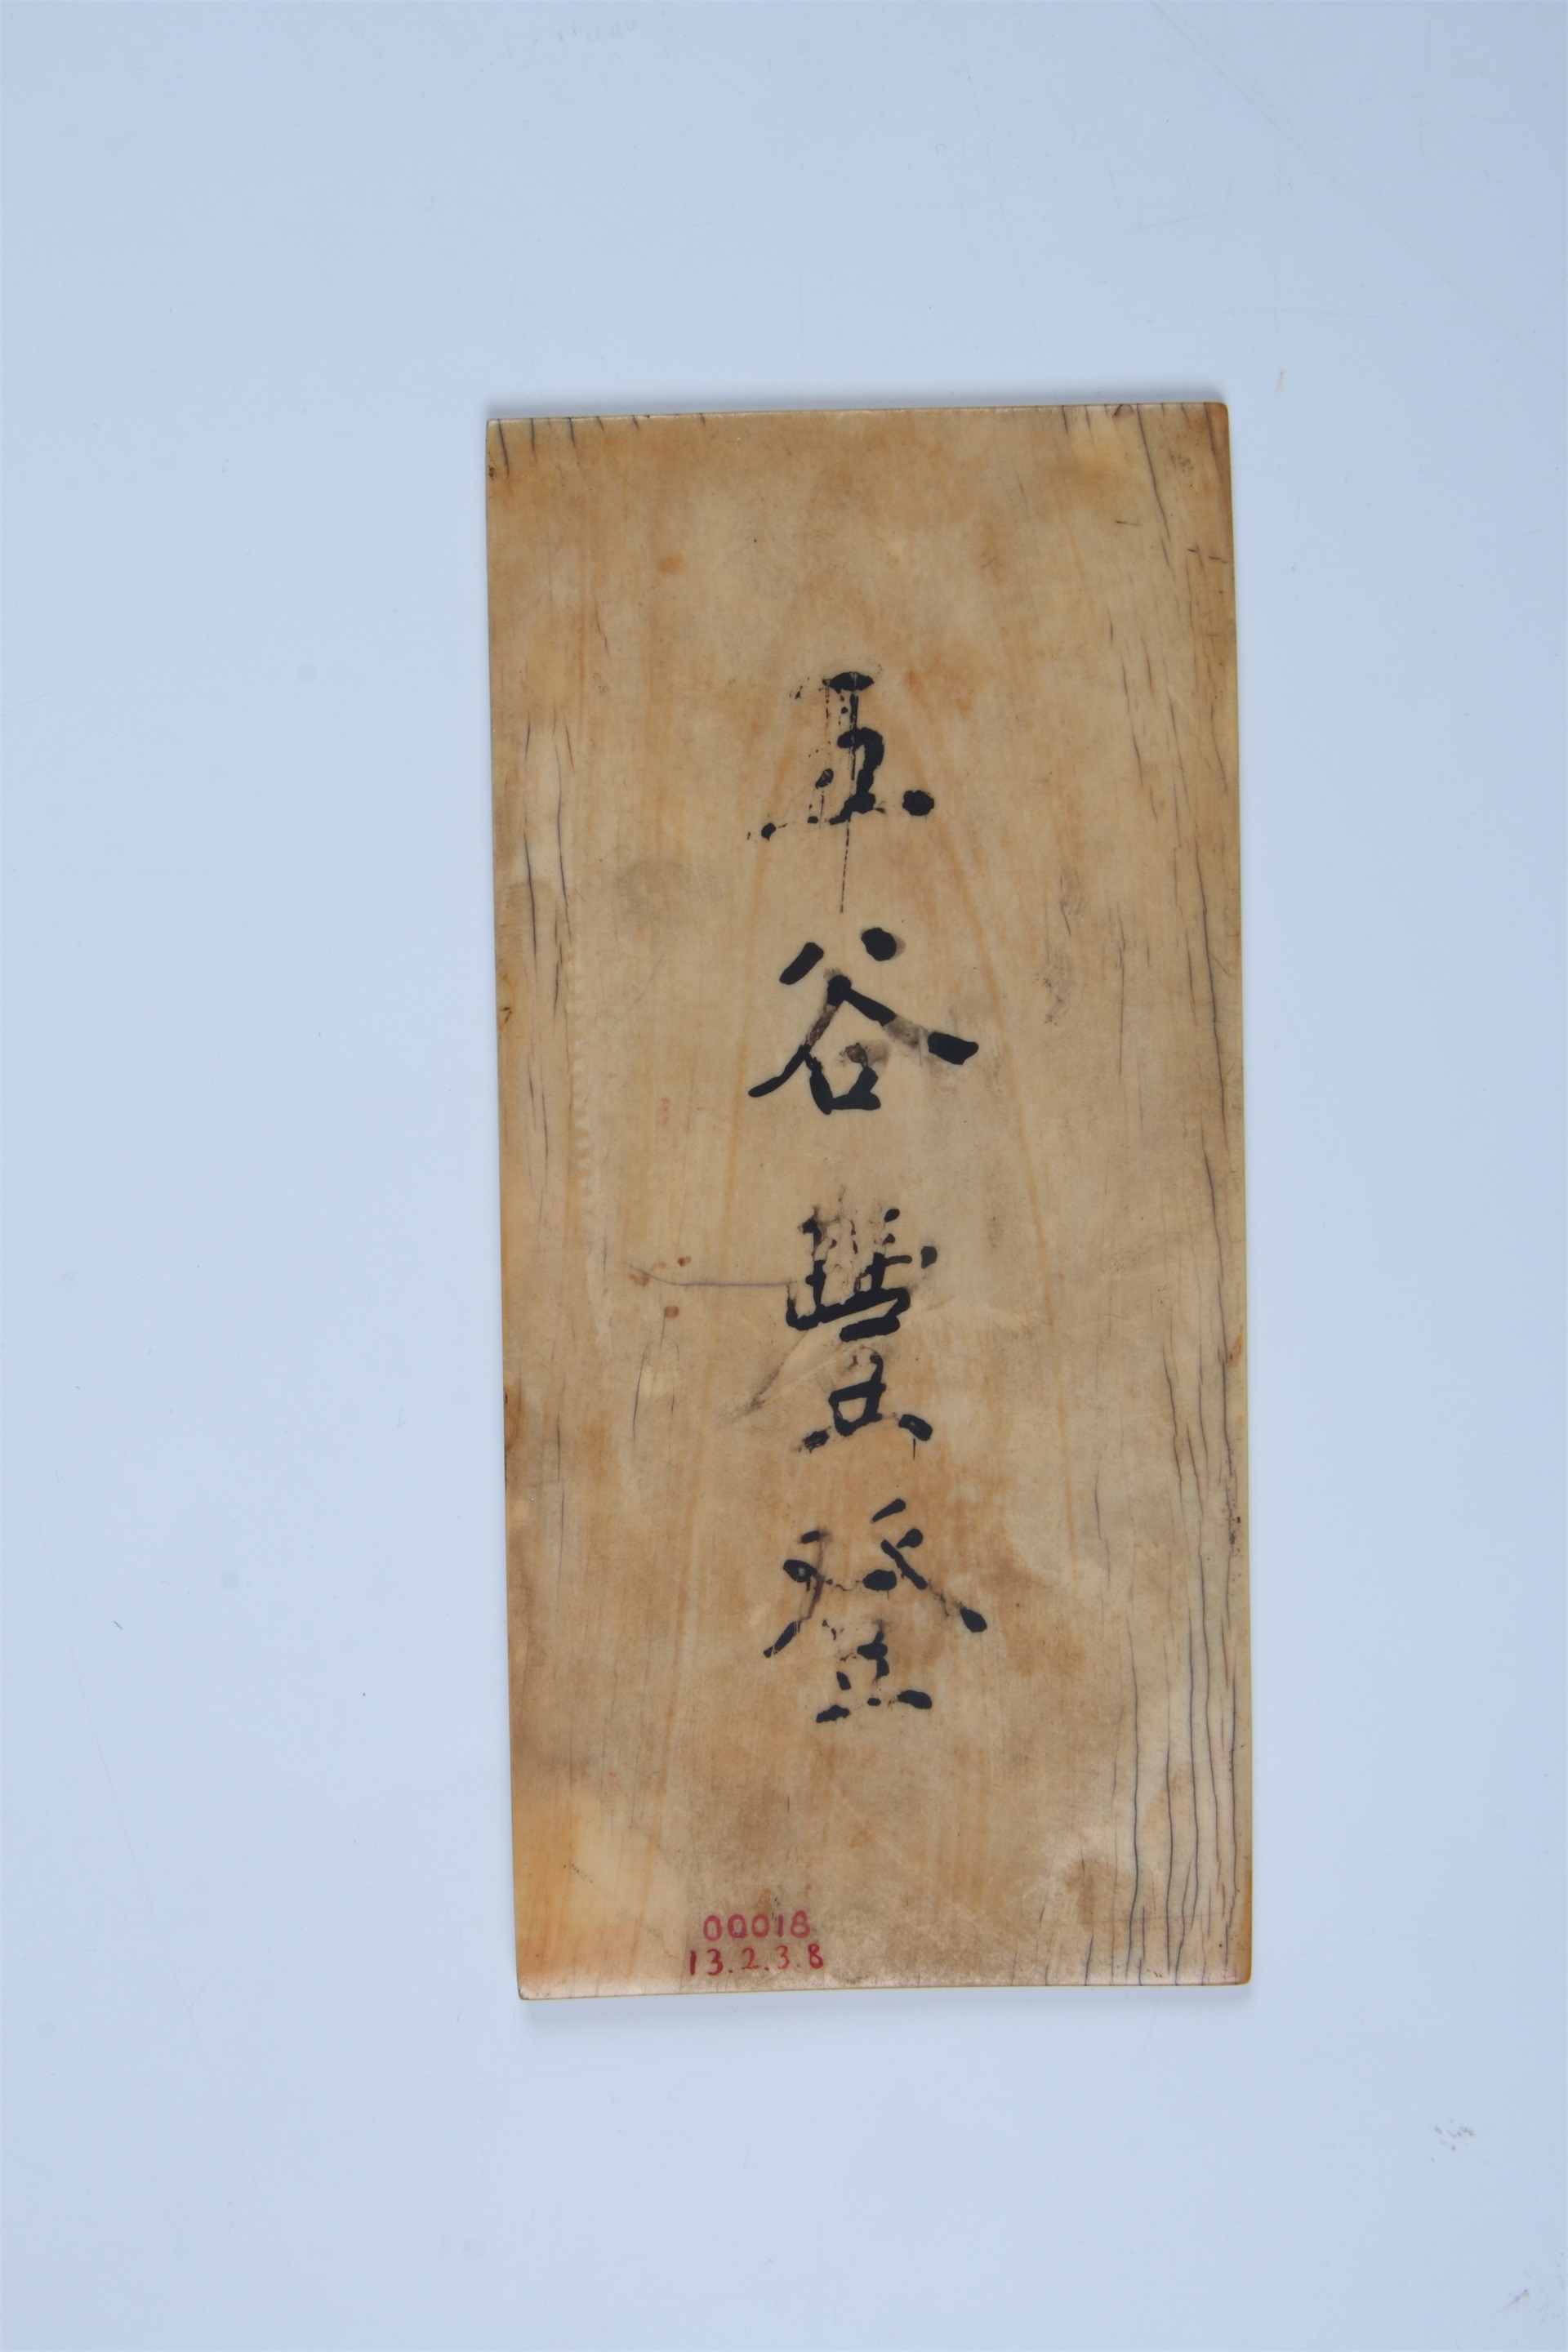 五谷豐登
00018
13.2.3.8